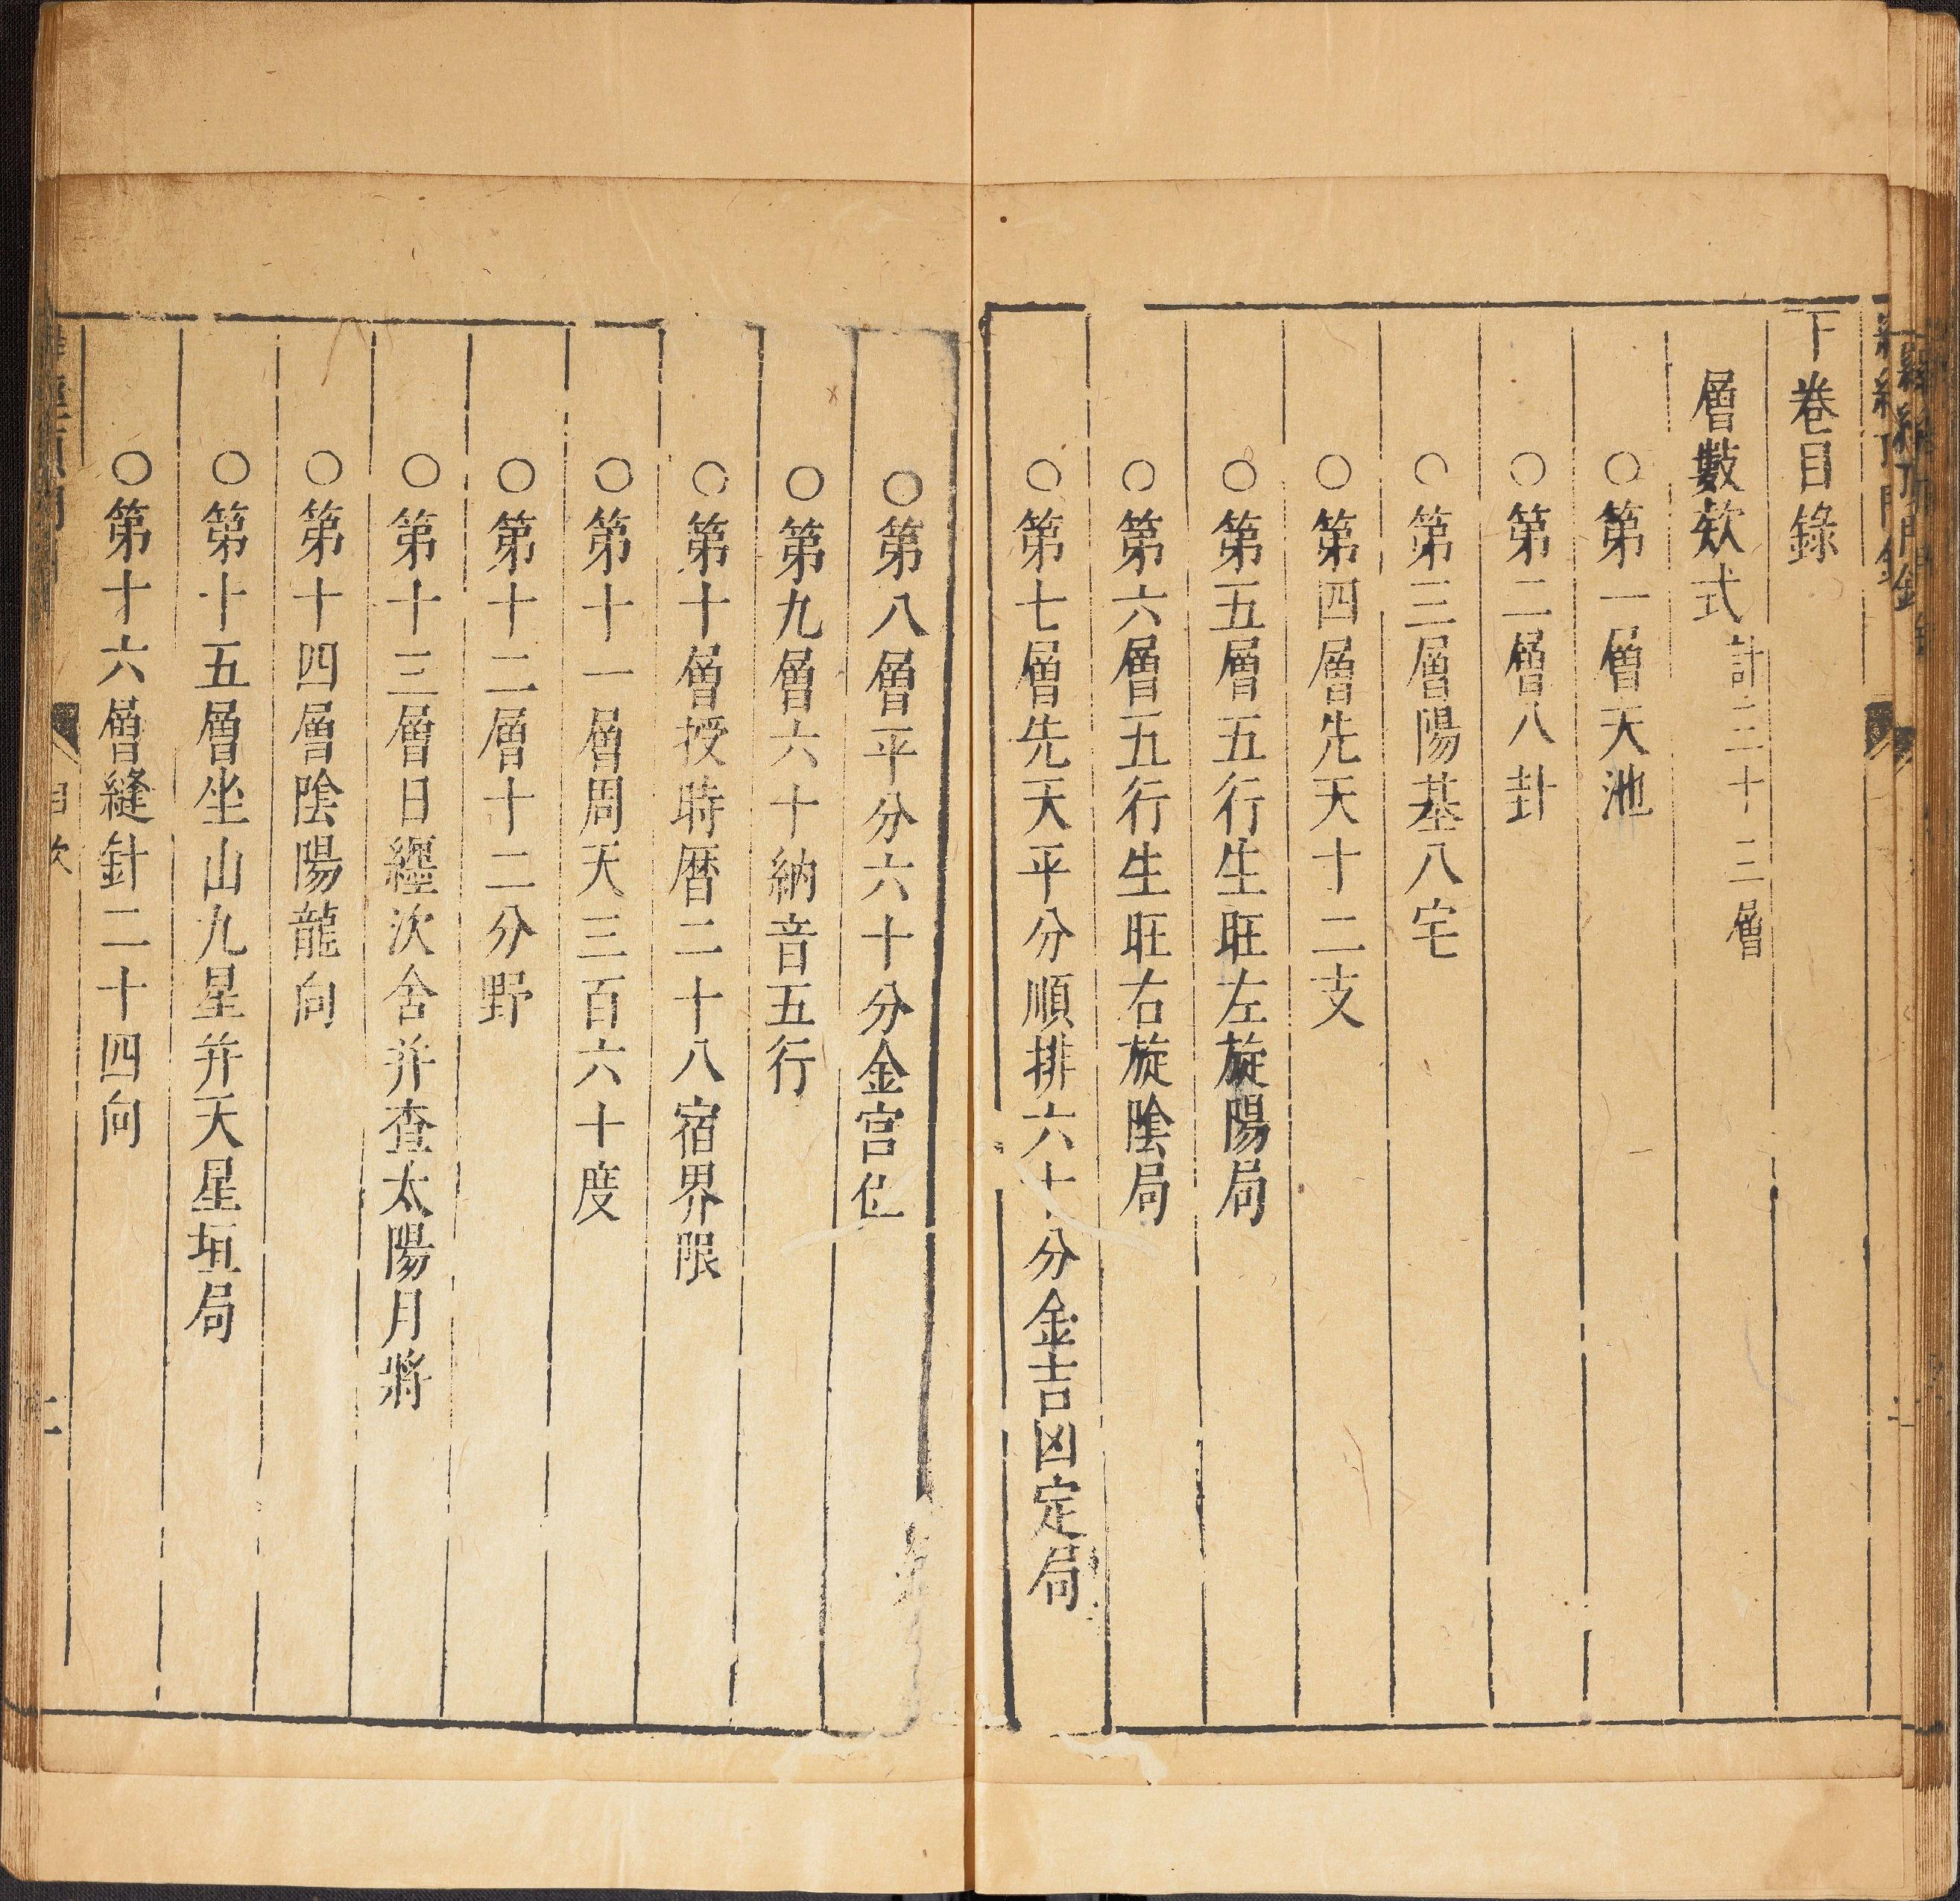 下卷目錄
層數欵式計三十三層
○第一層天池
○第二層八卦
○第三層陽基八宅
○第四層先天十二支
○第五層五行生旺左旋陽局
○第六層五行生旺右旋陰局
○第七層先天平分順排六十分金吉凶定局
○第八層平分六十分金宮位
○第九層六十納音五行
○第十層授時曆二十八宿界限
○第十一層周天三百六十度
○第十二層十二分野
○第十三層日纏次舍并查太陽月將
○第十四層陰陽龍向
○第十五層坐山九星并天星垣局
○第十六層縫針二十四向